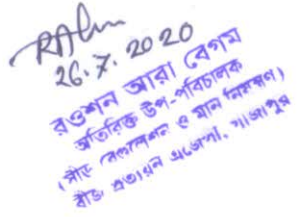 26.7.2020
রওশন আরা বেগম
অতিরিক্ত উপ-পরিচালক
(বীজ রেগুলেশন ও মান নিয়ন্ত্রণ)
বীজ প্রত্যয়ন এজেন্সী, গাজীপুর